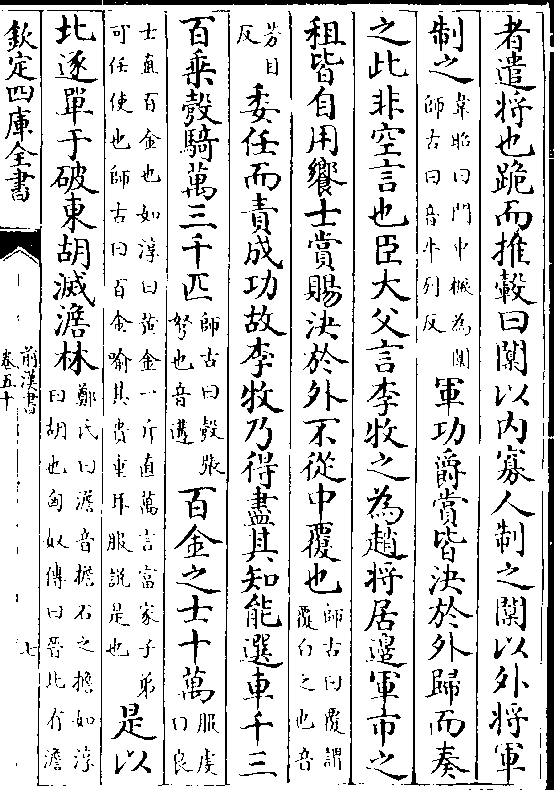 者遣将也跪而推轂曰闑以内寡人制之闑以外将軍
制之韋昭曰門中橛為闑師古曰音牛列反軍功爵賞皆決於外歸而奏
之此非空言也臣大父言李牧之為趙将居邊軍市之
租皆自用饗士賞賜決於外不從中覆也師古曰覆謂覆白之也音
芳目反委任而責成功故李牧乃得盡其知能選車千三
百乗彀騎萬三千匹師古曰彀張弩也音遘百金之士十萬服虔曰良
士直百金也如淳曰黄金一斤直萬言富家子弟可任使也師古曰百金喻其貴重耳服説是也是以
北逐單于破東胡滅澹林鄭氏曰澹音擔石之擔如淳曰胡也匈奴傳曰晉北有澹
欽定四庫全書
前漢書
卷五十
七